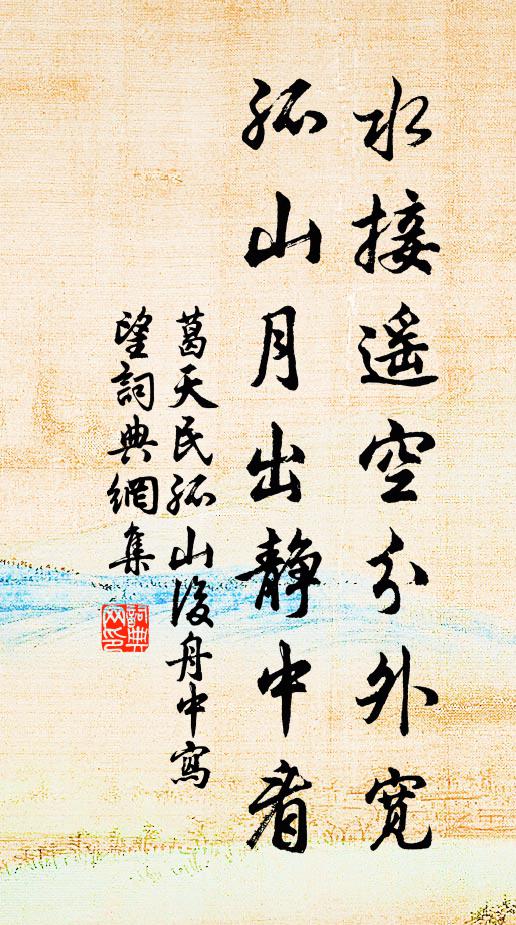 水接遥空分外寬
孤山月出静中看
葛天民孤山後舟中寫
望詞典網集
詞典網印